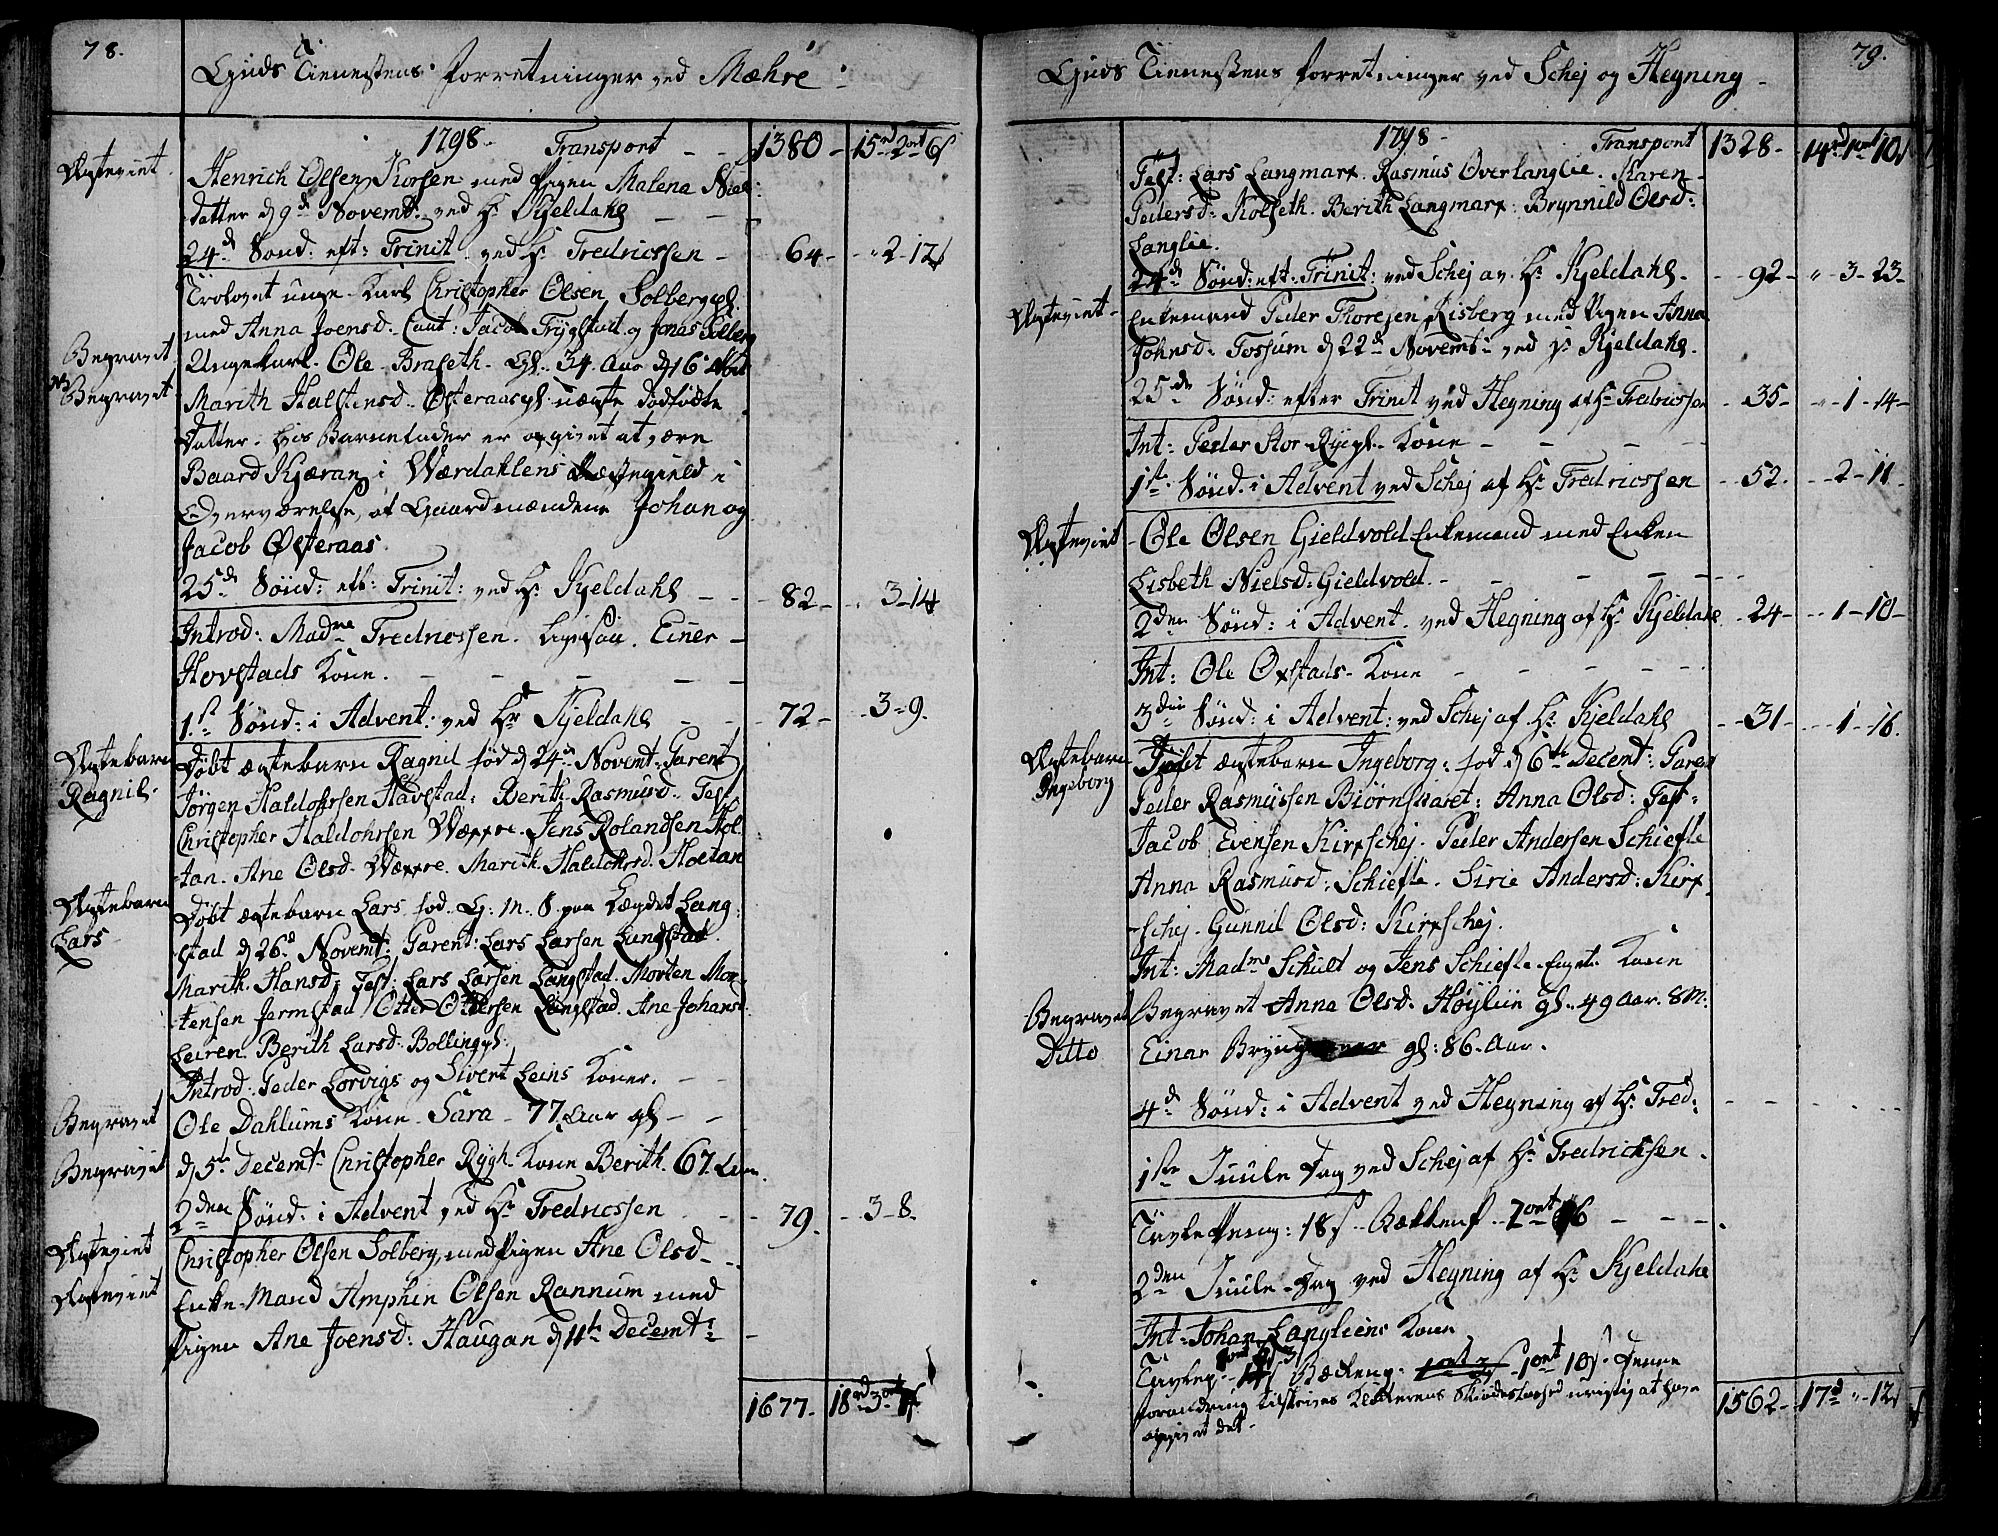 78.
Guds Tienestens forretninger ved Mæhre
1798. Transport 1380 - 15rd 2ort 6s
Ægteviet Henrich Olsen Korsen med Pigen Malena Niels
datter d 9d Novembr ved Hr Kjeldahl
24d Sønd: eft: Trinit: ved Hr Fredricssen 64 - 2-12s
Trolovet unge Karl Christopher Olsen Solbergpl:
med Anna Joensd. Caut: Jacob Trygstad og Jonas Solberg
Begravet Ungekarl Ole Braseth. Gl. 34 Aar d 16 Nbr
NB Begravet Marith Halstensd. Østeraaspl: uægte dødfødte
Datter. his Barnefader er opgivet at være
Baard Kjæran i Wærdahlens Præstegield i
Overværelse af Gaardmændene Johan og
Jacob Østeraas.
25d Sønd: eft: Trinit: ved Hr Kjeldahl 82 - 3-14
Introd: Madme Fredricssen. ligesaa Einer
Hovstads Kone.
1st Sønd: i Advent: ved Hr Kjeldahl 72 - 3-9.
Ægtebarn Døbt ægtebarn Ragnil fød d 24de Novemt. Parent
Ragnil. Jørgen Haldohrsen Havstad: Berith Rasmusd. Test
Christopher Haldohrsen Wæxre. Jens Rolandsen Hol
tan. Ane Olsd. Wæxre. Marith Haldohrsd. Holtan
Ægtebarn Døbt ægtebarn Lars fød. G: M. S. paa Lægdet Lang
Lars stad d 26d Novemt: Parent: Lars Larsen Langstad.
Marith Hansd: Test: Lars Larsen Langstad. Morten Mor
tensen Jermstad Otter Ottersen Langstad. Ane Johansd
Leiren. Berith Larsd. Bollingpl:
Introd: Peder Lorvigs og Sivert Leins Koner.
Begravet Ole Dahlums Kone Sara - 77 Aar gl
Begravet d 5te Decembr Christopher Rygh. Kone Berith. 67. Aar
2den Sønd: i Advent ved Hr Fredricssen 79. 3-8.
Ægteviet Christopher Olsen Solberg, med Pigen Ane Olsd
Ægteviet Enke-Mand Amphin Olsen Rannum med
Pigen Ane Joensd: Haugan d 11te Decemt:
1677. 18rd 3ort 1s
79.
Guds Tienestens forretninger ved Schej og Hegning
1798. Transport 1328. 14rd 1ort 10s
Test: Lars Langmarx. Rasmus Overlanglie. Karen
Pedersd: Kolseth. Berith Langmarx. Brynnild Olsd:
Langlie.
24d Sønd: eft: Trinit: ved Schej av Hr Kjeldahl 92 - 3-23
Ægteviet Enkemand Peder Thoresen Risberg med Pigen Anna
Johnsd: Fossum d 22d Novemt: ved Hr Kjeldahl.
25de Sønd: efter Trinit ved Hegning af Hr Fredricssen 35 - 1-14
Int: Peder Stor Rygpl. Kone
1ste Sønd. i Advent ved Schej af Hr Fredricssen 52. 2-11
Ægteviet Ole Olsen Gieldvold Enkemand med Enken
Lisbeth Nielsd: Gieldvold.
2den Sønd: i Advent. ved Hegning af Hr Kjeldahl 24 - 1-10
Int: Ole Oxstads Kone
3die Sønd: i Advent: ved Schej af Hr Kjeldahl 31 - 1-16.
Ægtebarn Døbt ægtebarn Ingeborg: fød d 6te Decemt: Paren
Ingeborg Peder Rasmussen Biørnsaret: Anna Olsd: Test:
Jacob Evensen Kirxschej. Peder Andersen Schiefle
Anna Rasmusd: Schiefle. Sirie Andersd: Kirx
schej. Gunnil Olsd: Kirxschej.
Int: Madme Schult og Jens Schiefle Koner
Begravet Begravet Anna Olsd. Høyliin gl. 49 Aar. 8 M:
Ditto Einar gl: 86. Aar.
4d Sønd: i Advent ved Hegning af Hr Fred:
1ste Juule Dag ved Schej af Hr Fredricksen.
Tavlepeng: 18s. Bækkens 2ort 6
2den Juule-Dag ved Hegning af Hr Kjeldahl
Int: Johan Langliens Kone
Tavlep. Bækpeng. 1ort 10s. Denne
forandring tilskrives at have
opgivet det.
1562 - 17rd " - 12s